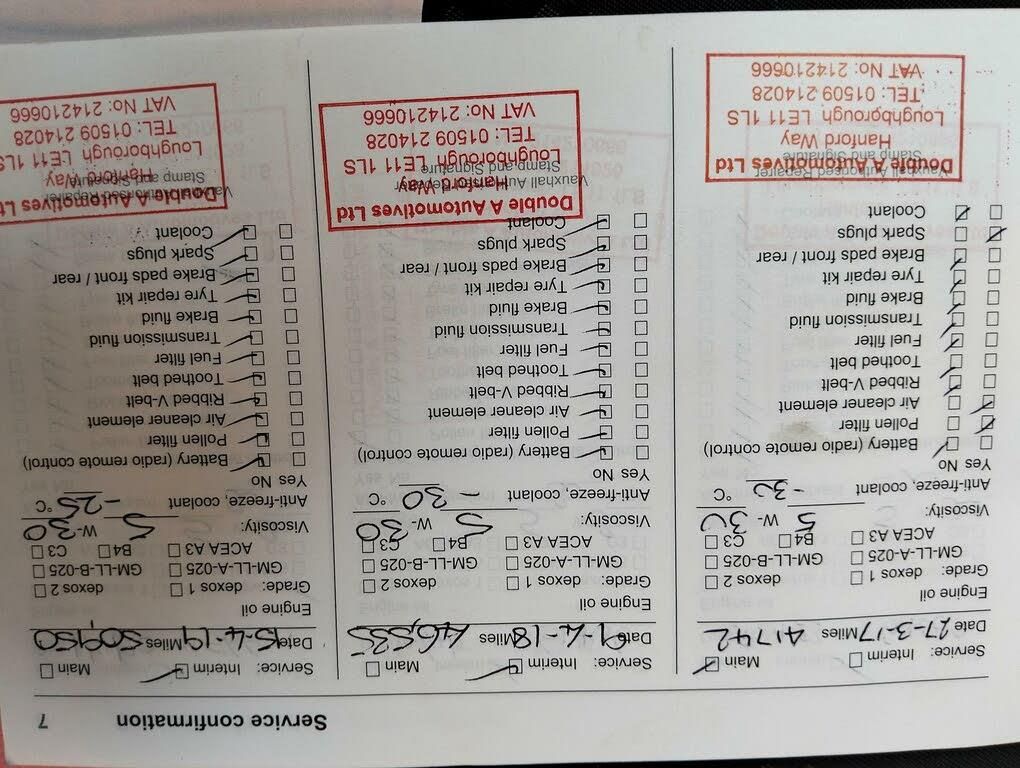 Service confirmation 7
Service: Interim Main
Date 27-3-17 Miles 41742
Engine oil
Grade: dexos 1 dexos 2
GM-LL-A-025 GM-LL-B-025
ACEA A3 B4 C3
Viscosity: 5 W- 30
Anti-freeze, coolant -30 °C
Yes No
Battery (radio remote control)
Pollen filter
Air cleaner element
Ribbed V-belt
Toothed belt
Fuel filter
Transmission fluid
Brake fluid
Tyre repair kit
Brake pads front / rear
Spark plugs
Coolant
Vauxhall Authorised Repairer
Stamp and Signature
Double A Automotives Ltd
Hanford Way
Loughborough LE11 1LS
TEL: 01509 214028
VAT No: 214210666
Service: Interim Main
Date 9-4-18 Miles 46,535
Engine oil
Grade: dexos 1 dexos 2
GM-LL-A-025 GM-LL-B-025
ACEA A3 B4 C3
Viscosity: 5 W- 30
Anti-freeze, coolant -30 °C
Yes No
Battery (radio remote control)
Pollen filter
Air cleaner element
Ribbed V-belt
Toothed belt
Fuel filter
Transmission fluid
Brake fluid
Tyre repair kit
Brake pads front / rear
Spark plugs
Coolant
Vauxhall Authorised Repairer
Stamp and Signature
Double A Automotives Ltd
Hanford Way
Loughborough LE11 1LS
TEL: 01509 214028
VAT No: 214210666
Service: Interim Main
Date 15-4-19 Miles
Engine oil
Grade: dexos 1 dexos 2
GM-LL-A-025 GM-LL-B-025
ACEA A3 B4 C3
Viscosity: 5 W- 30
Anti-freeze, coolant -25 °C
Yes No
Battery (radio remote control)
Pollen filter
Air cleaner element
Ribbed V-belt
Toothed belt
Fuel filter
Transmission fluid
Brake fluid
Tyre repair kit
Brake pads front / rear
Spark plugs
Coolant
Vauxhall Authorised Repairer
Stamp and Signature
Double A Automotives Ltd
Hanford Way
Loughborough LE11 1LS
TEL: 01509 214028
VAT No: 214210666